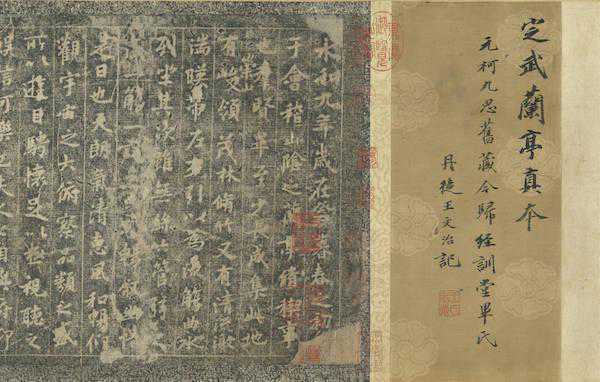 定武蘭亭真本
元柯九思舊藏今歸經訓堂畢氏
丹徒王文治記
永和九年歲在癸丑暮春之初
于會稽山陰之蘭亭脩禊事
也羣賢畢至少長咸集此地
有崇山峻領茂林脩竹又有清流激
湍暎帶左右引以為流觴曲水
列坐其次雖無絲竹管弦之
盛一觴一詠亦足以暢敘幽情
是日也天朗氣清惠風和暢仰
觀宇宙之大俯察品類之盛
所以遊目騁懷足以極視聽之
娛信可樂也夫人之相與俯仰